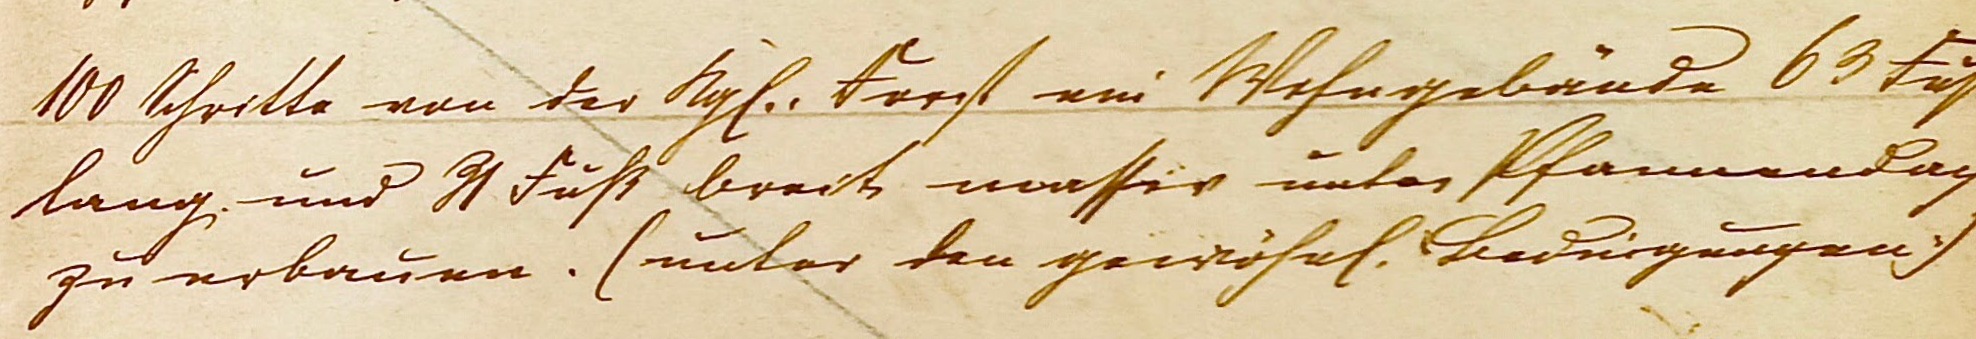 100 Schritte von der Kgl. Forst ein Wohngebäude 63 Fuß
lang und 31 Fuß breit massiv unter Pfannendach
zu erbauen. (unter den gewöhnl. Bedingungen:)